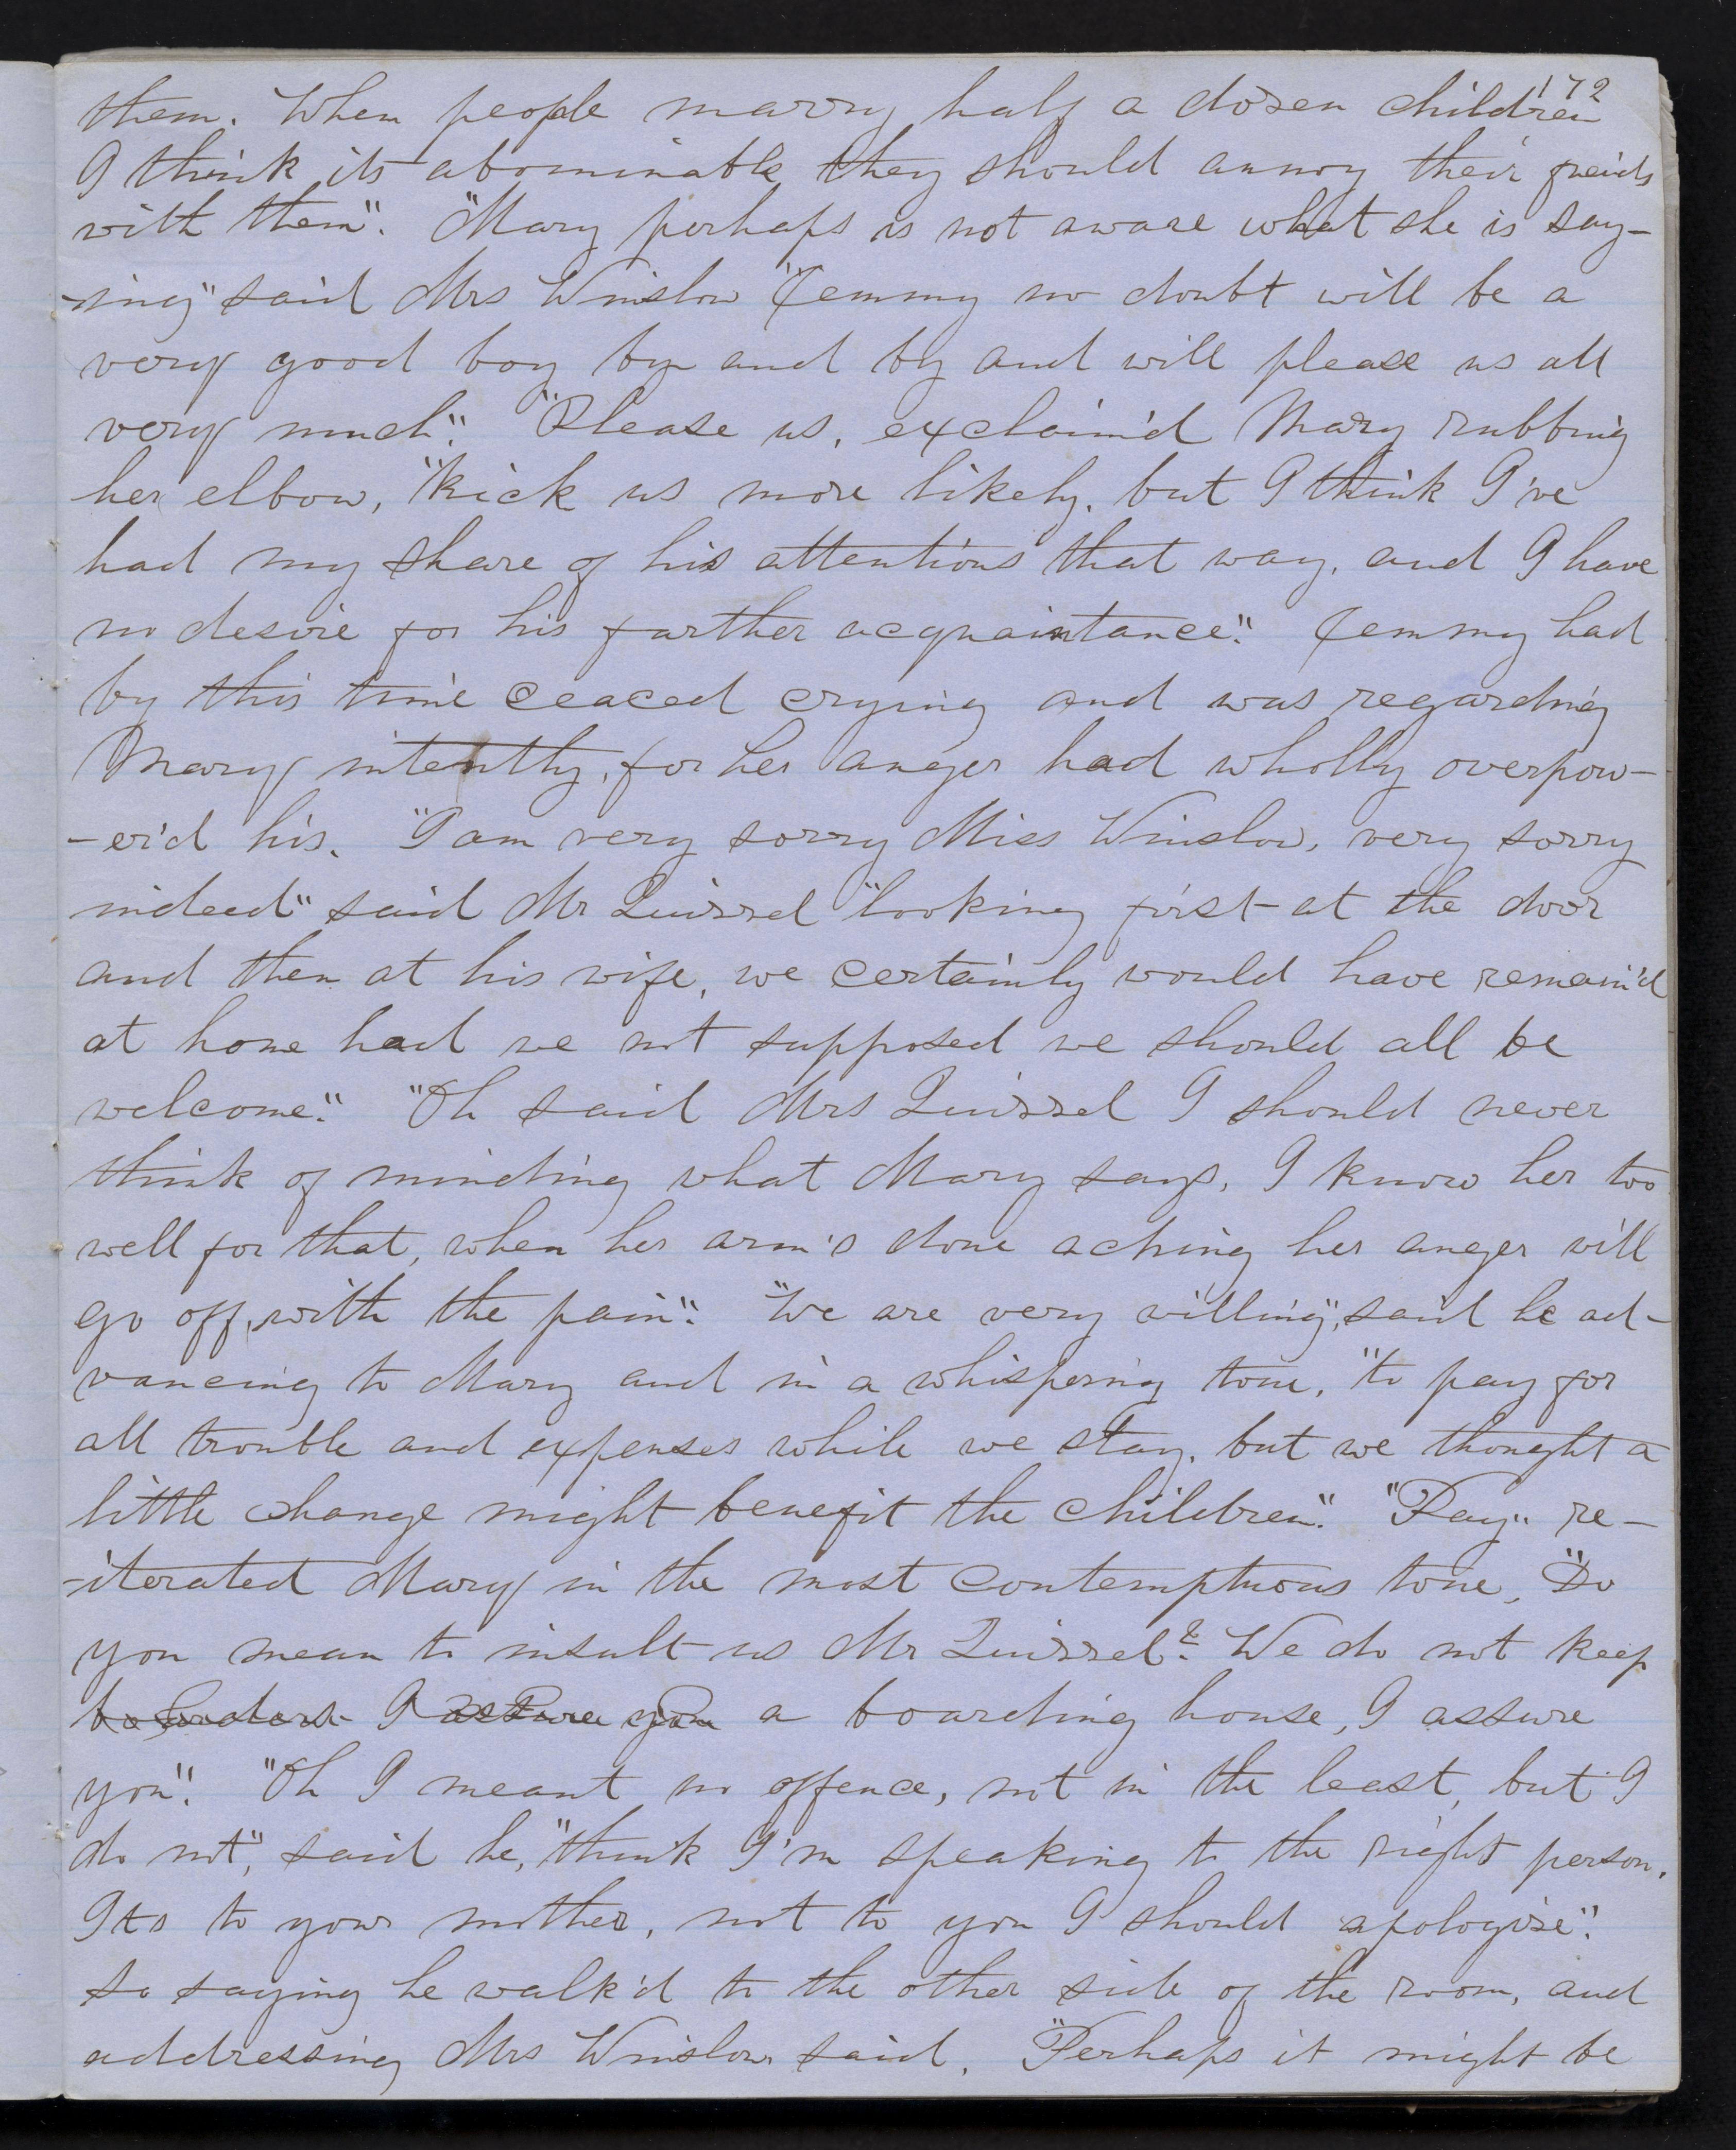 172
them. When people marry half a dozen children
I think its abominable they should annoy their freids
with them". "Mary perhaps is not aware what she is say-
-ing" said Mrs Winslow "Jemmy no doubt will be a
very good boy by and by and will please us all
very much". "Please us, exclaim'd Mary rubbing
her elbow, "kick us more likely, but I think I've
had my share of his attentions that way, and I have
no desire for his farther acquaintance". Jemmy had
by this time ceaced crying and was regarding
Mary intently, for her anger had wholly overpow-
-er'd his. "I am very sorry Miss Winslow, very sorry
indeed" said Mr Quirrel "looking first at the door
and then at his wife, we certainly would have remain'd
at home had we not supposed we should all be
welcome". "Oh said Mrs Quirrel I should never
think of minding what Mary says, I know her too
well for that, when her arm's done aching her anger will
go off, with the pain". "We are very willing", said he ad-
vancing to Mary and in a whispering tone, "to pay for
all trouble and expenses while we stay, but we thought a
little change might benefit the children". "Pay" re-
-iterated Mary in the most contemptuous tone, "Do
you mean to insult us Mr Quirrel? We do not keep
boarders I assure you a boarding house, I assure
you". "Oh I meant no offence, not in the least, but I
do not", said he, "think I'm speaking to the right person.
Its to your mother, not to you I should apologise".
So saying he walk'd to the other side of the room, and
addressing Mrs Winslow said, "Perhaps it might be